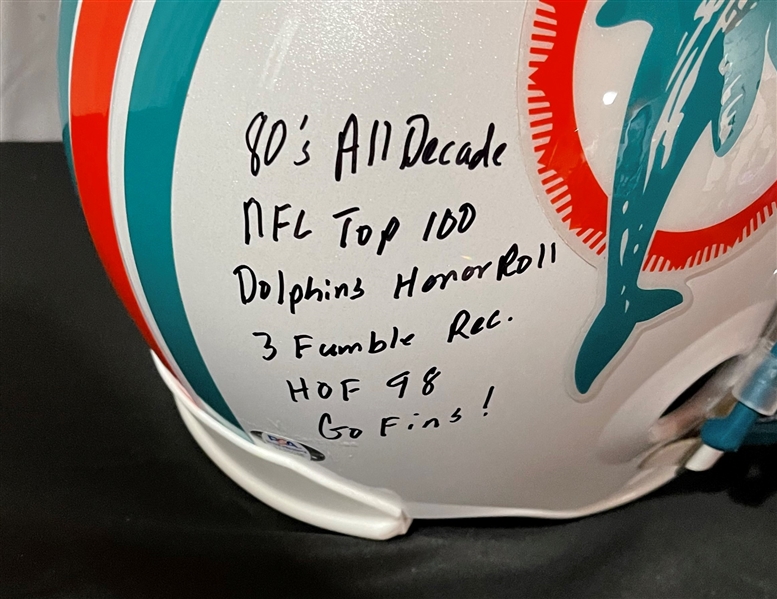 80's All Decade
NFL Top 100
Dolphins Honor Roll
3 Fumble Rec.
HOF 98
Go Fins!
PSA